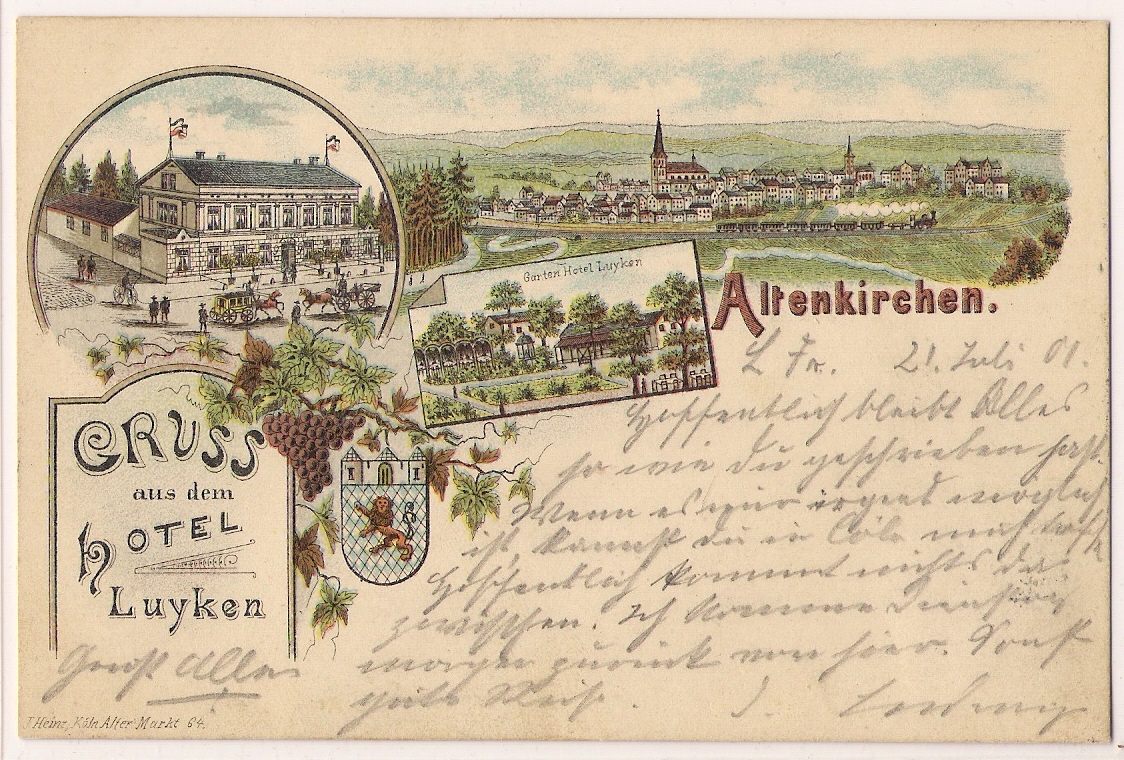 Garten Hotel Luyken
Altenkirchen.
L Fr. 21. Juli 01.
Hoffentlich bleibt Alles
so wie du geschrieben hast.
Wenn es mir irgend möglich
ist, kannst du in Cöln
Hoffentlich kommt nichts da
zwischen. Ich komme Dienstag
morgen zurück von hier. Sonst
GRUSS
aus dem
HOTEL
Luyken
Grüße Alle
Ludwig
J Heinz, Köln Alter Markt 64.